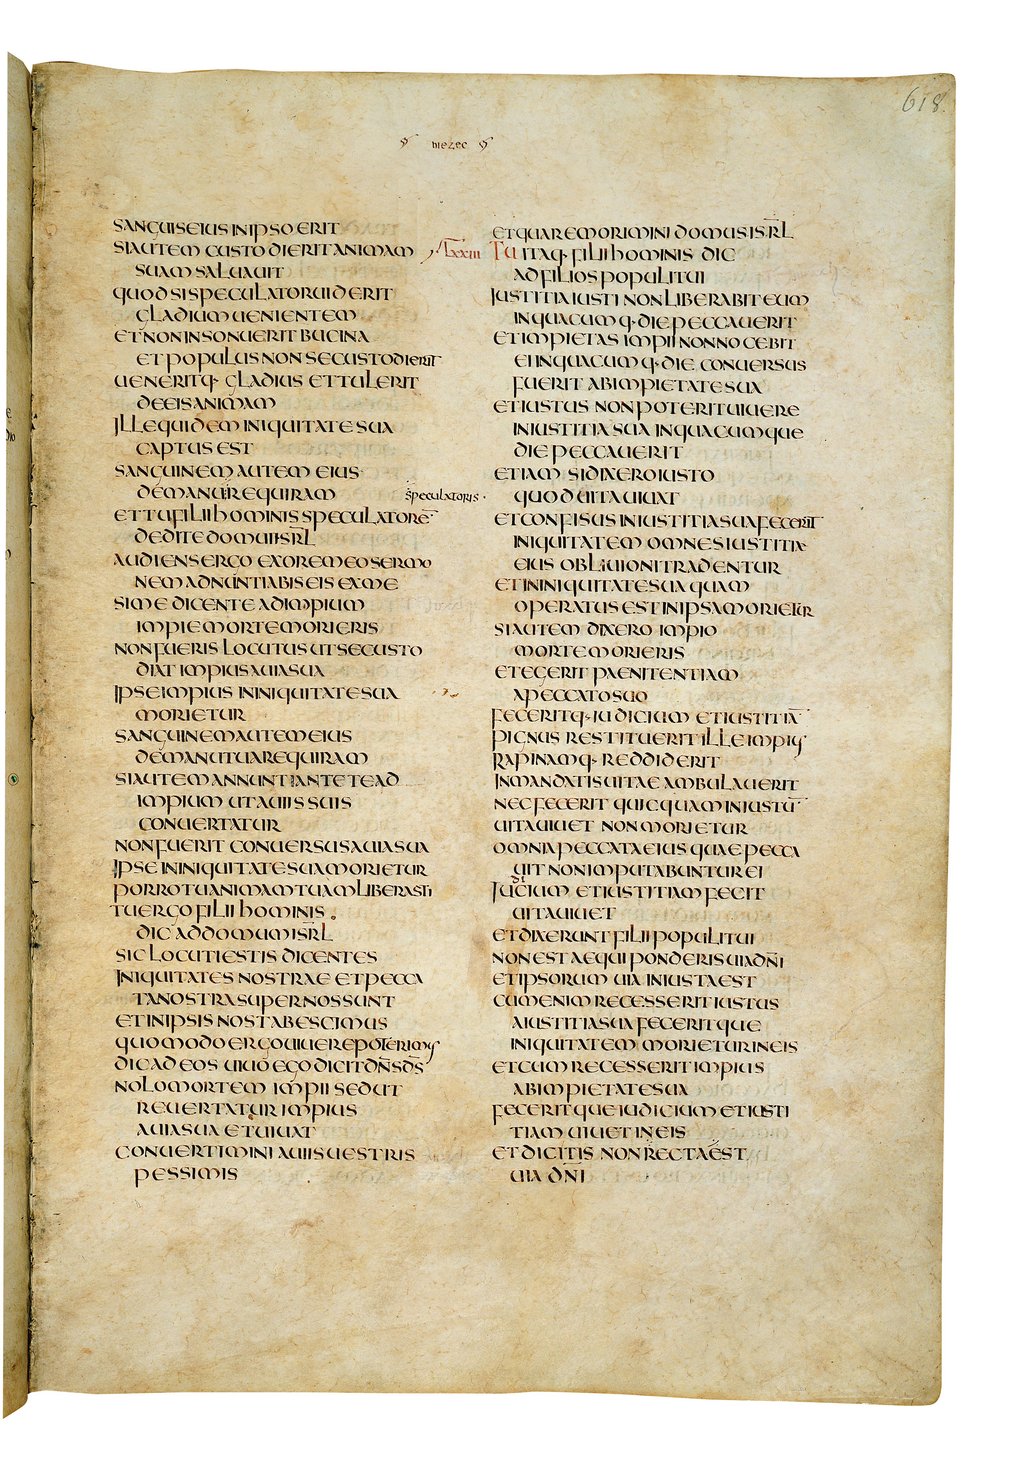 618.
hiezec
SANGUIS EIUS IN IPSO ERIT
SI AUTEM CUSTODIERIT ANIMAM
SUAM SALUAUIT
QUOD SI SPECULATOR UIDERIT
GLADIUM UENIENTEM
ET NON INSONUERIT BUCINA
ET POPULUS NON SE CUSTODIERIT
UENERITQ· GLADIUS ET TULERIT
DE EIS ANIMAM
ILLE QUIDEM IN INIQUITATE SUA
CAPTUS EST
SANGUINEM AUTEM EIUS
DE MANU REQUIRAM
speculatoris·
ET TU FILI HOMINIS SPECULATORĒ
DEDI TE DOMUI ISRL̄
AUDIENS ERGO EX ORE MEO SERMO
NEM ADNUNTIABIS EIS EX ME
SI ME DICENTE AD IMPIUM
IMPIE MORTE MORIERIS
NON FUERIS LOCUTUS UT SE CUSTO
DIAT IMPIUS A UIA SUA
IPSE IMPIUS IN INIQUITATE SUA
MORIETUR
SANGUINEM AUTEM EIUS
DE MANU TUA REQUIRAM
SI AUTEM ANNUNTIANTE TE AD
IMPIUM UT A UIIS SUIS
CONUERTATUR
NON FUERIT CONUERSUS A UIA SUA
IPSE IN INIQUITATE SUA MORIETUR
PORRO TU ANIMAM TUAM LIBERASTI
TU ERGO FILI HOMINIS
DIC AD DOMUM ISRL̄
SIC LOCUTI ESTIS DICENTES
INIQUITATES NOSTRAE ET PECCA
TA NOSTRA SUPER NOS SUNT
ET IN IPSIS NOS TABESCIMUS
QUOMODO ERGO UIUERE POTERIMUS
DIC AD EOS UIUO EGO DICIT DN̄S DS̄
NOLO MORTEM IMPII SED UT
REUERTATUR IMPIUS
A UIA SUA ET UIUAT
CONUERTIMINI A UIIS UESTRIS
PESSIMIS
ET QUARE MORIMINI DOMUS ISRL̄
LXXIII TU ITAQ· FILI HOMINIS DIC
AD FILIOS POPULI TUI
IUSTITIA IUSTI NON LIBERABIT EUM
IN QUACUMQ· DIE PECCAUERIT
ET IMPIETAS IMPII NON NOCEBIT
EI IN QUACUMQ· DIE CONUERSUS
FUERIT AB IMPIETATE SUA
ET IUSTUS NON POTERIT UIUERE
IN IUSTITIA SUA IN QUACUMQUE
DIE PECCAUERIT
ETIAM SI DIXERO IUSTO
QUOD UITA UIUAT
ET CONFISUS IN IUSTITIA SUA FECERIT
INIQUITATEM OMNES IUSTITIAE
EIUS OBLIUIONI TRADENTUR
ET IN INIQUITATE SUA QUAM
OPERATUS EST IN IPSA MORIETUR
SI AUTEM DIXERO IMPIO
MORTE MORIERIS
ET EGERIT PAENITENTIAM
A PECCATO SUO
FECERITQ· IUDICIUM ET IUSTITIĀ
PIGNUS RESTITUERIT ILLE IMPIUS
RAPINAMQ· REDDIDERIT
IN MANDATIS UITAE AMBULAUERIT
NEC FECERIT QUICQUAM INIUSTŪ
UITA UIUET NON MORIETUR
OMNIA PECCATA EIUS QUAE PECCA
UIT NON IMPUTABUNTUR EI
IUdiCIUM ET IUSTITIAM FECIT
UITA UIUET
ET DIXERUNT FILI POPULI TUI
NON EST AEQUI PONDERIS UIA DN̄I
ET IPSORUM UIA INIUSTA EST
CUM ENIM RECESSERIT IUSTUS
A IUSTITIA SUA FECERITQUE
INIQUITATEM MORIETUR IN EIS
ET CUM RECESSERIT IMPIUS
AB IMPIETATE SUA
FECERITQUE IUDICIUM ET IUSTI
TIAM UIUET IN EIS
ET DICITIS NON RECTA EST
UIA DN̄I